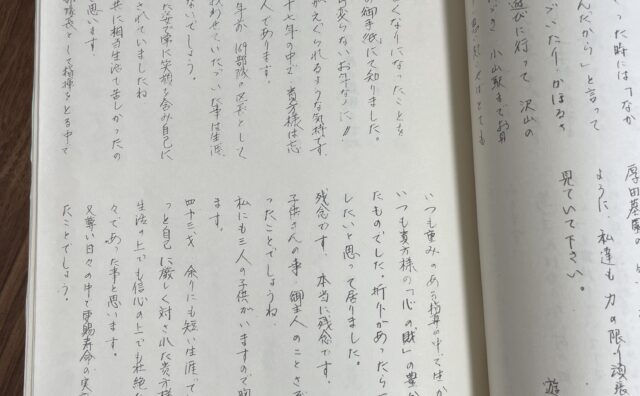 った時には「なか
んだから」と言って
いたり、かほるさ
遊びに行って 沢山の
小山駅までお
厚田墓園の
ように、私達も力の限り頑張
見ていて下さい。
遊
くなりになったことを
御手紙にて知りました。
変らないお年なのに!!
がえぐられるような気持です。
十七年の中で、貴方様は忘
人であります。
年が 169部隊の区長として
戦わせていただいた事は生涯
ないでしょう。
に笑顔を含み自己に
されていましたね
共に相当生活で苦しかったの
思います。
部隊長として指揮をとる中で
いつも重みのある指導の中で生か
いつも貴方様の「心の財」の豊か
たものでした。折りがあったら一
したいと思って居りました。
残念です。本当に残念です。
子供さんの事、御主人のことさぞ
ったことでしょうね
私にも三人の子供がいますので胸
ます。
四十三才 余りにも短い生涯で
っと自己に厳しく対された貴方様
生活の上でも信心の上でも壮絶な
々であった事と思います。
又尊い日々の中で更賜寿命の実
たことでしょう。